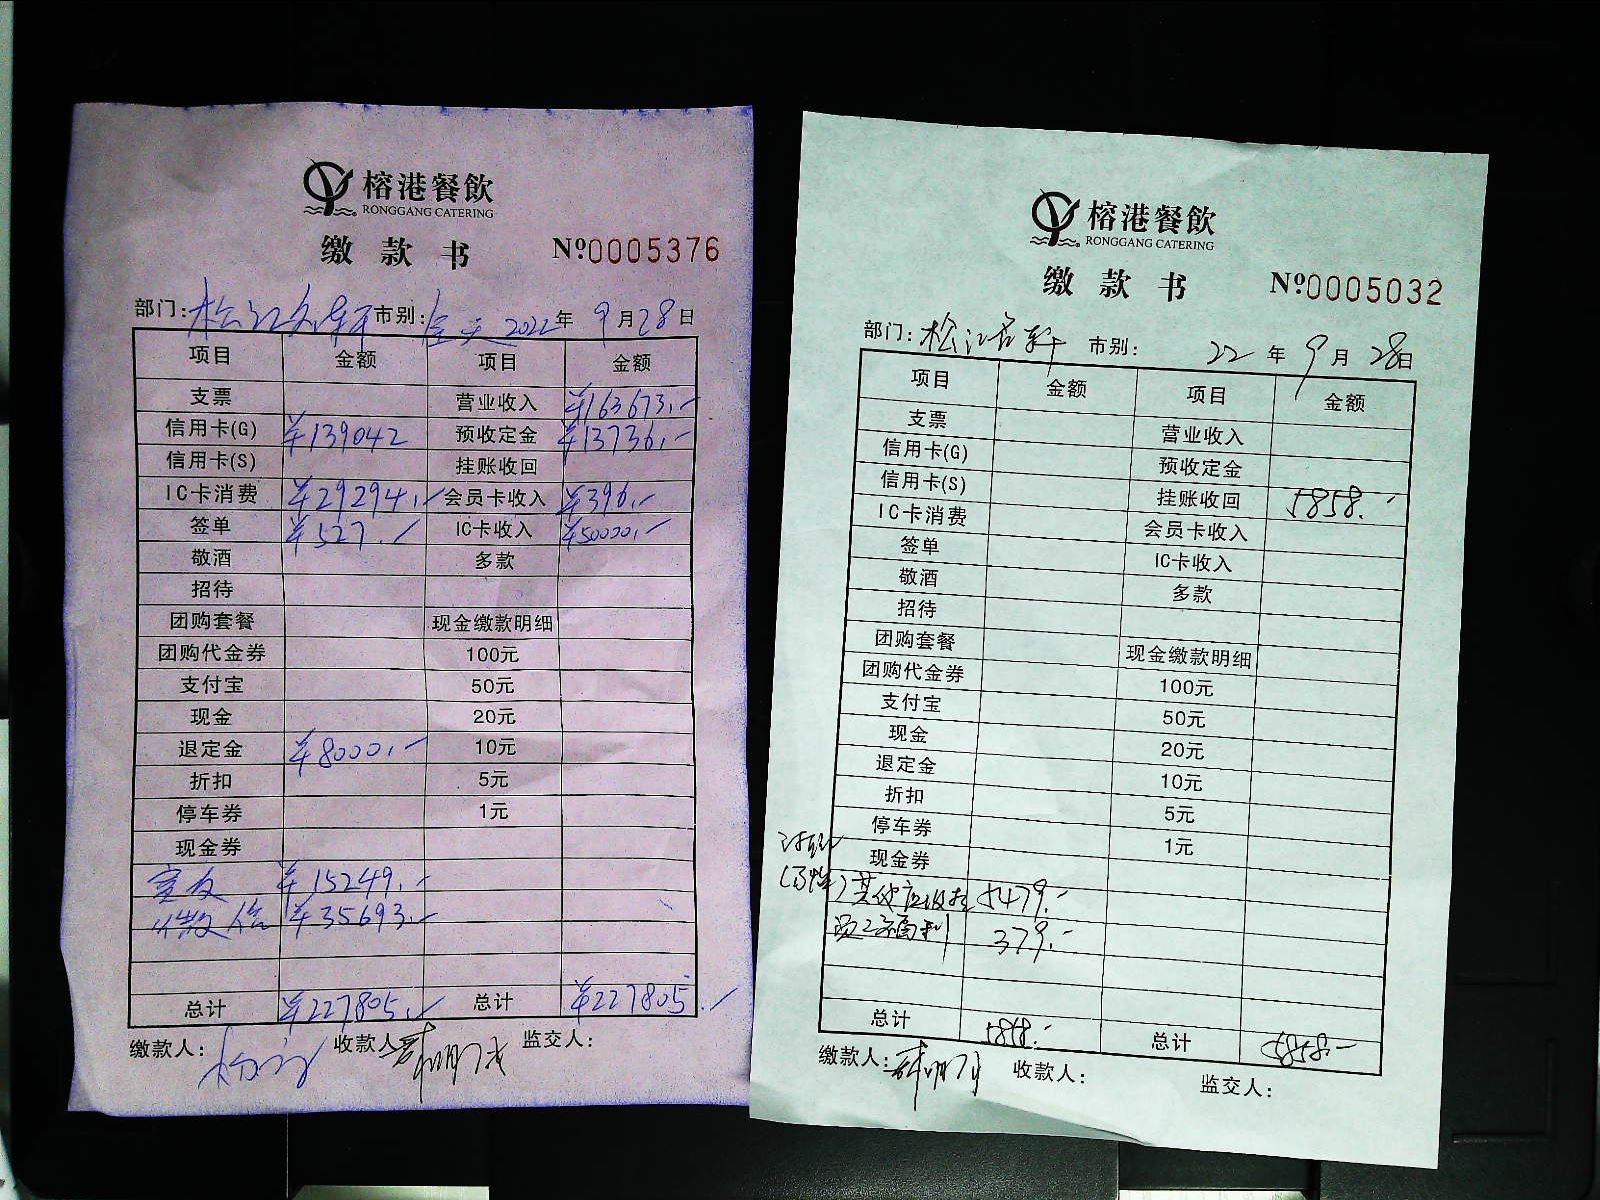 榕港餐飲
RONGGANG CATERING
缴款书 №0005376
部门:松江名轩 市别:全天 2022年 9月28日
项目 金额 项目 金额
支票 营业收入 ¥163673.-
信用卡(G) ¥139042 预收定金 ¥13736.-
信用卡(S) 挂账收回
IC卡消费 ¥29294.- 会员卡收入 ¥396.-
签单 ¥527.- IC卡收入 ¥50000.-
敬酒 多款
招待
团购套餐 现金缴款明细
团购代金券 100元
支付宝 50元
现金 20元
退定金 ¥8000.- 10元
折扣 5元
停车券 1元
现金券
¥15249.-
¥35693.-
总计 ¥227805.- 总计 ¥227805.-
缴款人: 收款人 监交人:
榕港餐飲
RONGGANG CATERING
缴款书 №0005032
部门:松江名轩 市别: 22年 9月28日
项目 金额 项目 金额
支票 营业收入
信用卡(G) 预收定金
信用卡(S) 挂账收回 5858.-
IC卡消费 会员卡收入
签单 IC卡收入
敬酒 多款
招待
团购套餐 现金缴款明细
团购代金券 100元
支付宝 50元
现金 20元
退定金 10元
折扣 5元
停车券 1元
现金券
其他应收款 5479.-
员工福利 379.-
总计 5858.- 总计 5858.-
缴款人: 收款人: 监交人: